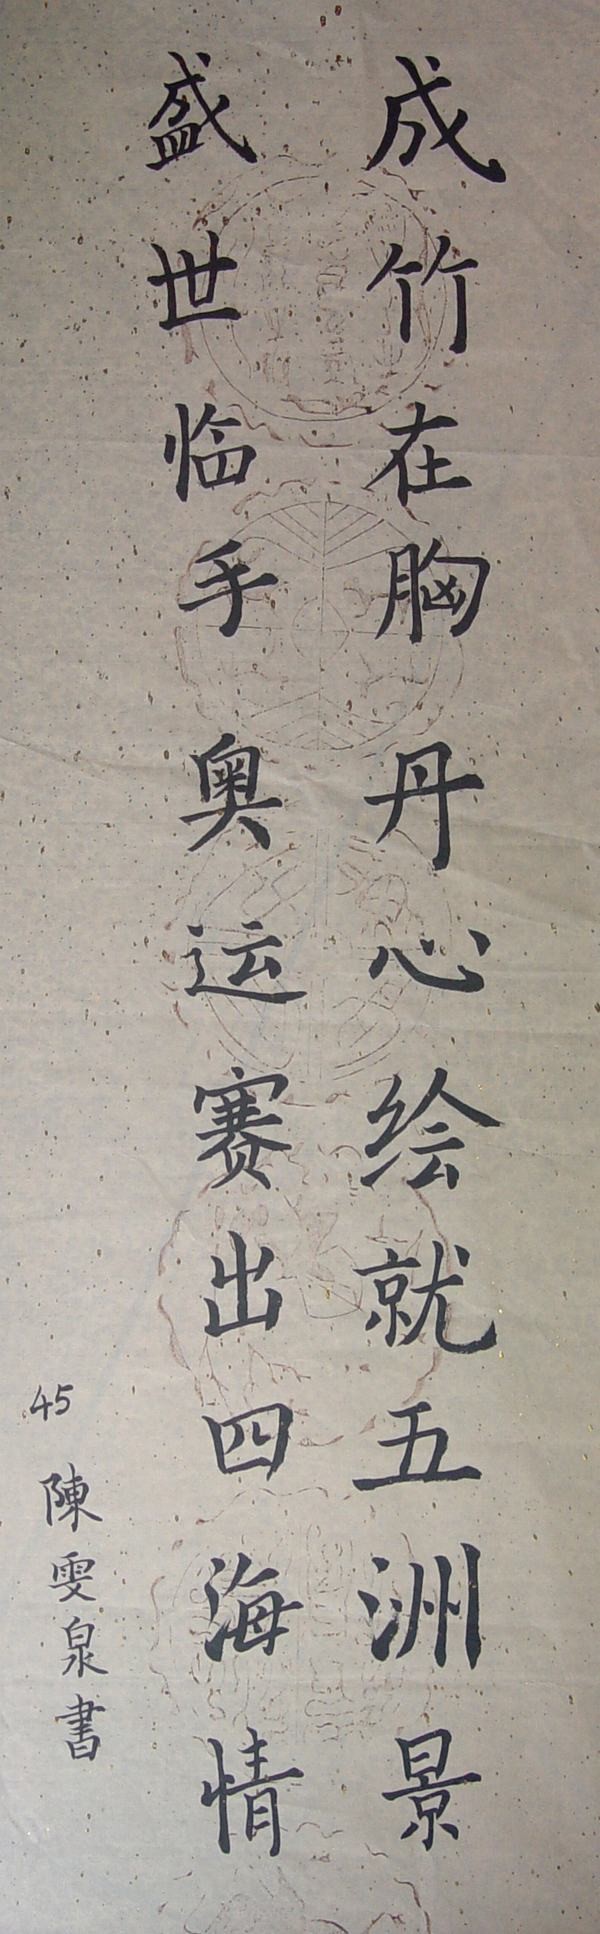 成竹在胸丹心绘就五洲景
盛世临手奥运赛出四海情
45 陳雯泉書